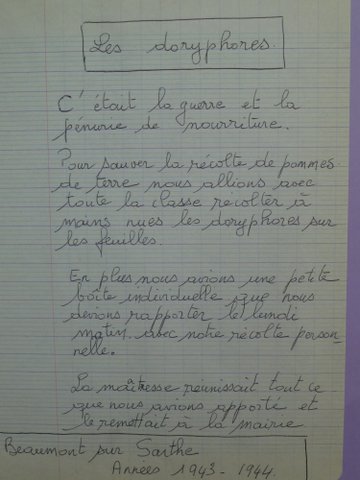 Les doryphores.
C'était la guerre et la
pénurie de nourriture.
Pour sauver la récolte de pommes
de terre nous allions avec
toute la classe récolter à
mains nues les doryphores sur
les feuilles.
En plus nous avions une petite
boîte individuelle que nous
devions rapporter le lundi
matin. avec notre récolte person-
nelle.
La maîtresse réunissait tout ce
que nous avions apporté et
le remettait à la mairie
Beaumont sur Sarthe
Années 1943-1944.